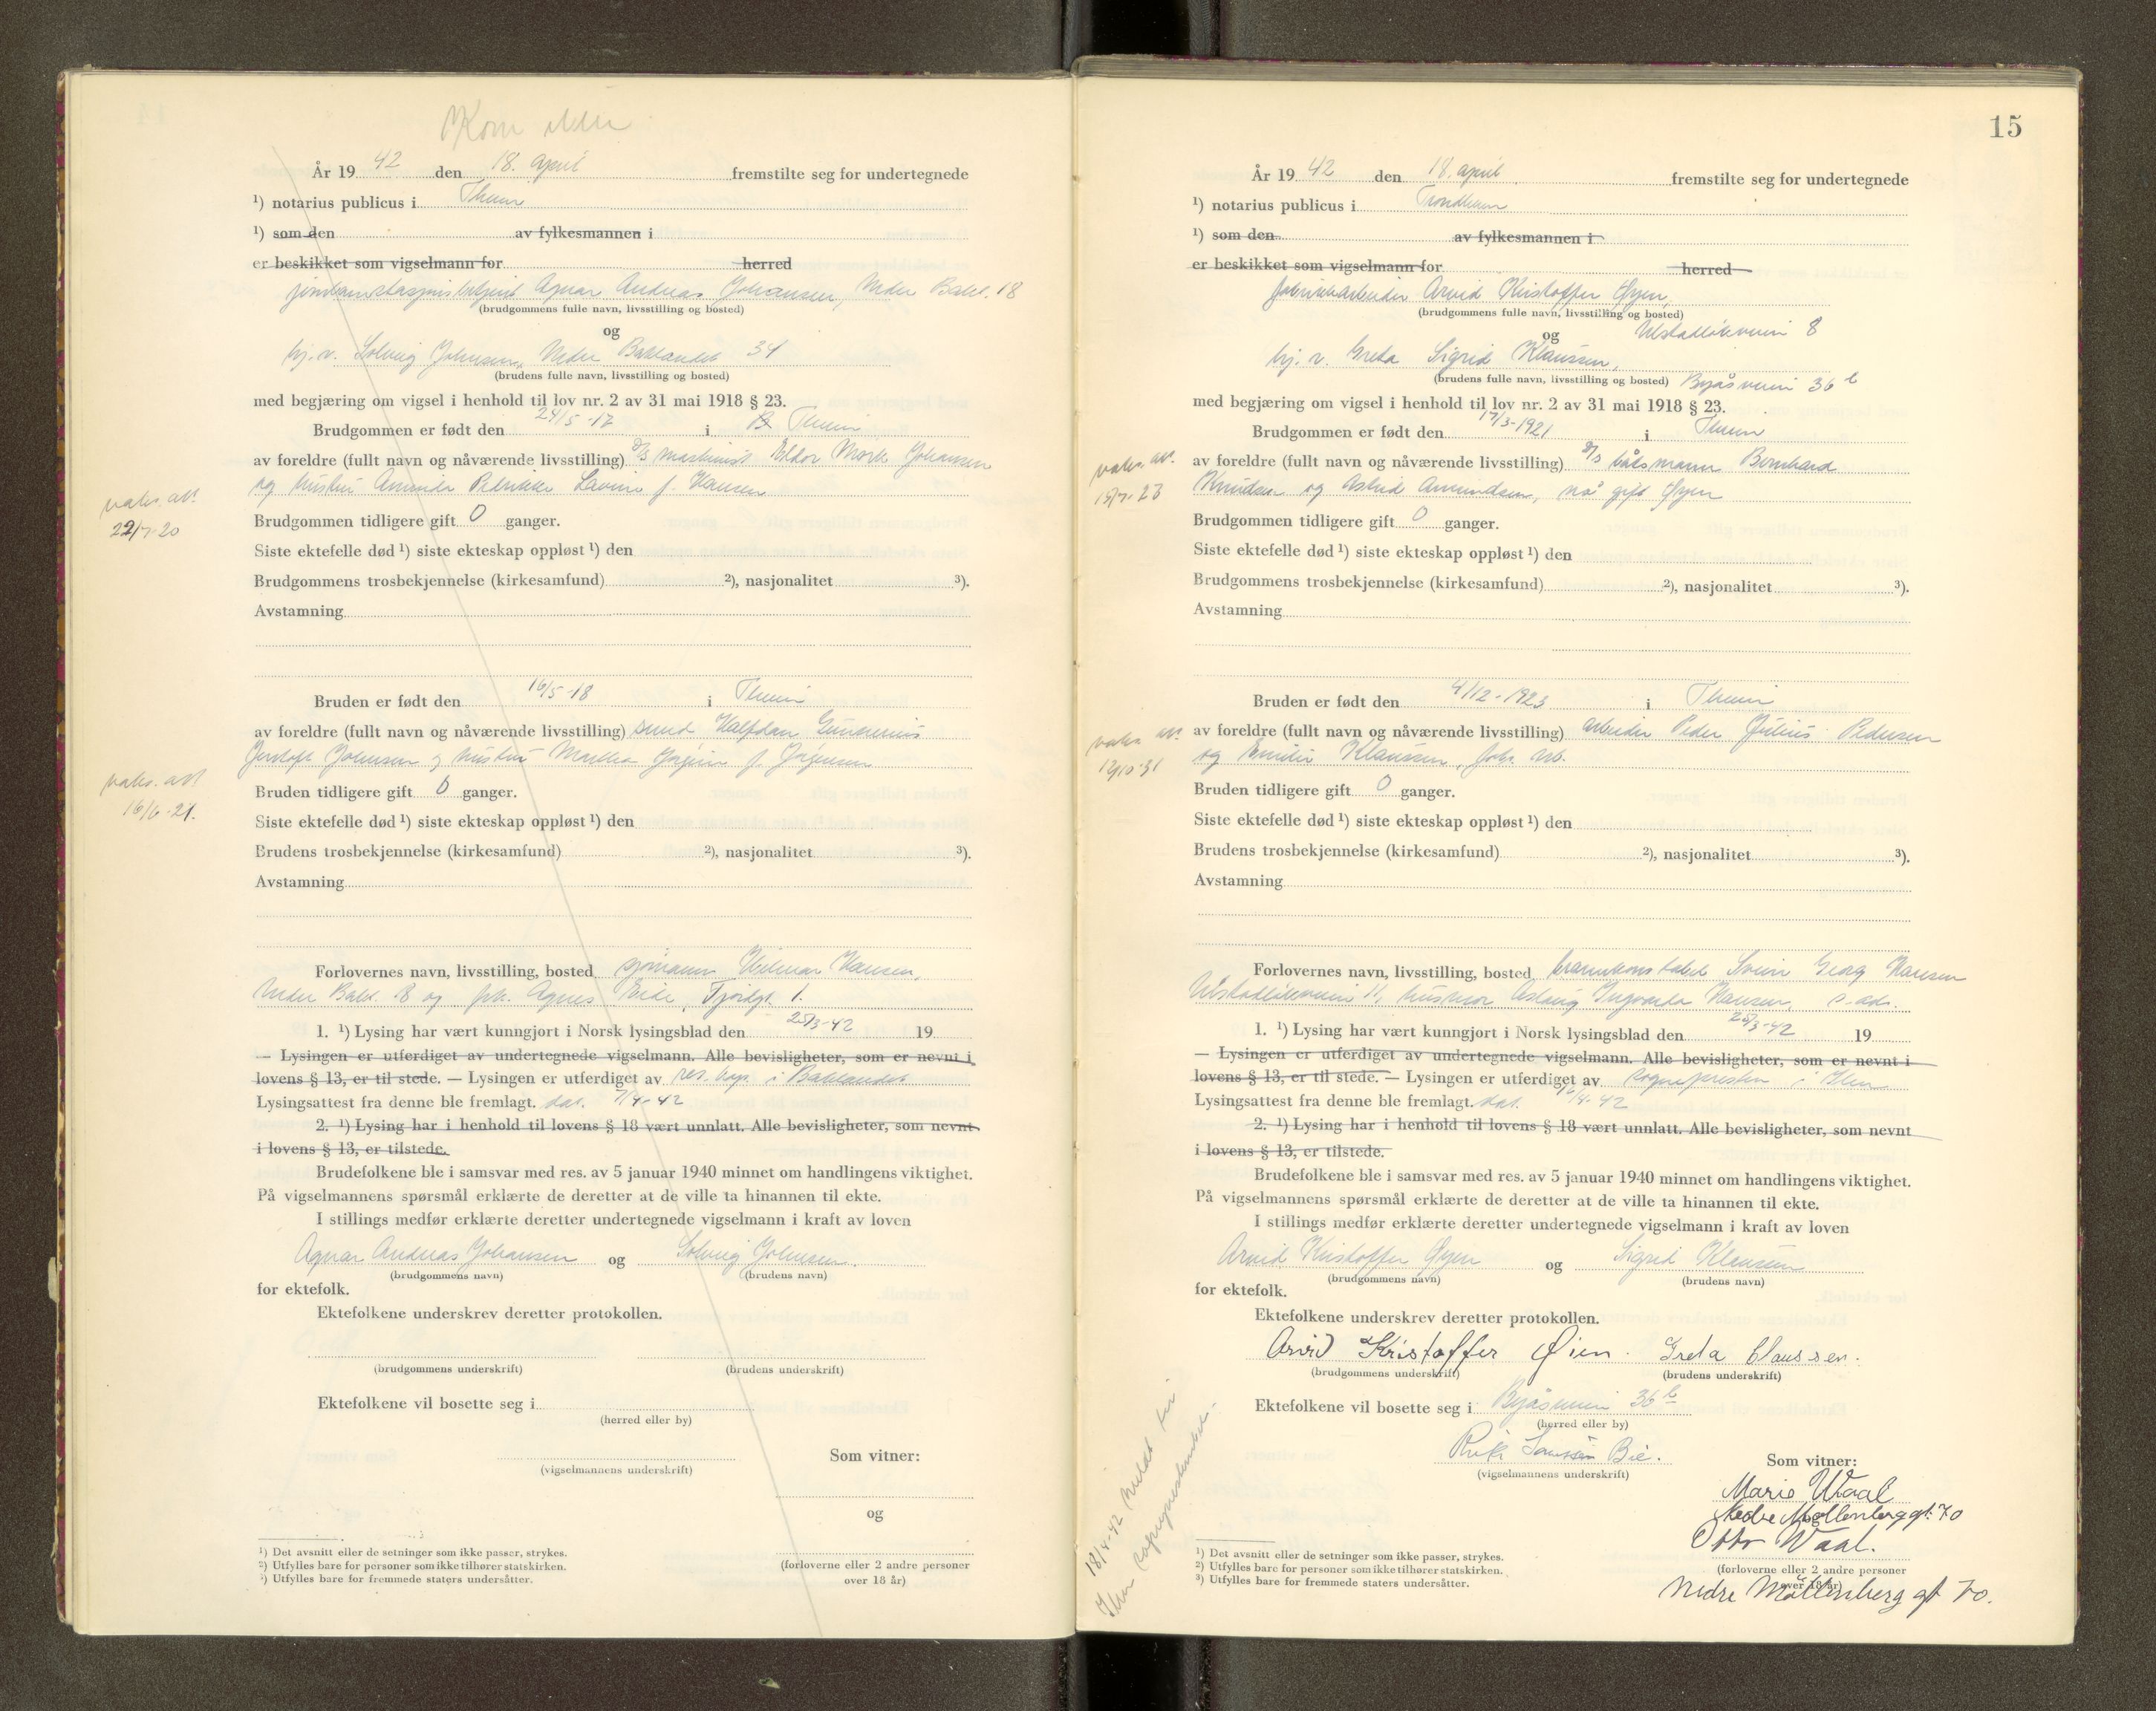 Kom ikke
År 19 42 den 18. april fremstilte seg for undertegnede
¹) notarius publicus i Theim
¹) som den av fylkesmannen i
er beskikket som vigselmann for herred
jernbanestasjonsbetjent Agnar Andreas Johansen, Nedre Bakl. 18
(brudgommens fulle navn, livsstilling og bosted)
og
hj. v. Solveig Johnsen, Nedre Baklandet 34
(brudens fulle navn, livsstilling og bosted)
med begjæring om vigsel i henhold til lov nr. 2 av 31 mai 1918 § 23.
Brudgommen er født den 24/5-17 i Theim
av foreldre (fullt navn og nåværende livsstilling) maskinist Eldor Mork Johansen
og hustru Amanda Petrikke Lavine f. Hansen
vaks. att.
22/7-20
Brudgommen tidligere gift 0 ganger.
Siste ektefelle død ¹) siste ekteskap oppløst ¹) den
Brudgommens trosbekjennelse (kirkesamfund) ²), nasjonalitet ³).
Avstamning
Bruden er født den 16/5-18 i Theim
av foreldre (fullt navn og nåværende livsstilling) smed Halfdan Gunerius
Johnsen og hustru Martha f. Jörgensen
vaks. att.
16/6-21.
Bruden tidligere gift 0 ganger.
Siste ektefelle død ¹) siste ekteskap oppløst ¹) den
Brudens trosbekjennelse (kirkesamfund) ²), nasjonalitet ³).
Avstamning
Forlovernes navn, livsstilling, bosted sjömann Hilmar Hansen,
Nedre Bakl. 18 og frk. Agnes Eide, Fjordgt. 1.
1. ¹) Lysing har vært kunngjort i Norsk lysingsblad den 25/3-42 19
— Lysingen er utferdiget av undertegnede vigselmann. Alle bevisligheter, som er nevnt i
lovens § 13, er til stede. — Lysingen er utferdiget av res. kap. i Baklandet
Lysingsattest fra denne ble fremlagt. dat. 7/4-42
2. ¹) Lysing har i henhold til lovens § 18 vært unnlatt. Alle bevisligheter, som nevnt
i lovens § 13, er tilstede.
Brudefolkene ble i samsvar med res. av 5 januar 1940 minnet om handlingens viktighet.
På vigselmannens spørsmål erklærte de deretter at de ville ta hinannen til ekte.
I stillings medfør erklærte deretter undertegnede vigselmann i kraft av loven
Agnar Andreas Johansen og Solveig Johnsen.
(brudgommens navn) (brudens navn)
for ektefolk.
Ektefolkene underskrev deretter protokollen.
(brudgommens underskrift) (brudens underskrift)
Ektefolkene vil bosette seg i
(herred eller by)
(vigselmannens underskrift)
Som vitner:
og
(forloverne eller 2 andre personer
over 18 år)
¹) Det avsnitt eller de setninger som ikke passer, strykes.
²) Utfylles bare for personer som ikke tilhører statskirken.
³) Utfylles bare for fremmede staters undersåtter.
15
År 19 42 den 18. april fremstilte seg for undertegnede
¹) notarius publicus i Trondheim
¹) som den av fylkesmannen i
er beskikket som vigselmann for herred
fabrikkarbeider Arvid Kristoffer Øyen,
(brudgommens fulle navn, livsstilling og bosted)
og Ulstadløkveien 8
hj. v. Greta Sigrid Klaussen,
(brudens fulle navn, livsstilling og bosted) Byåsveien 36 b
med begjæring om vigsel i henhold til lov nr. 2 av 31 mai 1918 § 23.
Brudgommen er født den 17/3-1921 i Theim
av foreldre (fullt navn og nåværende livsstilling) båtsmann Bernhard
Knudsen og Astrid Amundsen, nå gift Øyen
vaks. att.
Brudgommen tidligere gift 0 ganger.
Siste ektefelle død ¹) siste ekteskap oppløst ¹) den
Brudgommens trosbekjennelse (kirkesamfund) ²), nasjonalitet ³).
Avstamning
Bruden er født den 4/12-1923 i Theim
av foreldre (fullt navn og nåværende livsstilling) arbeider Peder Julius Pedersen
og Emilie Klaussen, fabr. arb.
vaks. att.
12/10-31
Bruden tidligere gift 0 ganger.
Siste ektefelle død ¹) siste ekteskap oppløst ¹) den
Brudens trosbekjennelse (kirkesamfund) ²), nasjonalitet ³).
Avstamning
Forlovernes navn, livsstilling, bosted brannkonstabel Svein Georg Hansen
Ulstadløkveien 11, husmor Aslaug Ingvarda Hansen, s. adr.
1. ¹) Lysing har vært kunngjort i Norsk lysingsblad den 25/3-42 19
— Lysingen er utferdiget av undertegnede vigselmann. Alle bevisligheter, som er nevnt i
lovens § 13, er til stede. — Lysingen er utferdiget av sognepresten i Ilen
Lysingsattest fra denne ble fremlagt. dat. 16/4-42
2. ¹) Lysing har i henhold til lovens § 18 vært unnlatt. Alle bevisligheter, som nevnt
i lovens § 13, er tilstede.
Brudefolkene ble i samsvar med res. av 5 januar 1940 minnet om handlingens viktighet.
På vigselmannens spørsmål erklærte de deretter at de ville ta hinannen til ekte.
I stillings medfør erklærte deretter undertegnede vigselmann i kraft av loven
Arvid Kristoffer Øyen og Sigrid Klaussen
(brudgommens navn) (brudens navn)
for ektefolk.
Ektefolkene underskrev deretter protokollen.
Arvid Kristoffer Øien. Greta Claussen.
(brudgommens underskrift) (brudens underskrift)
Ektefolkene vil bosette seg i Byåsveien 36 b
(herred eller by)
Bie.
(vigselmannens underskrift)
Som vitner:
Marie Waal
Nedre Møllenberg gt. 70
Otto Waal.
(forloverne eller 2 andre personer
over 18 år)
Nedre Møllenberg gt 70.
18/4-42 meldt til
Ilen sogneprestembede.
¹) Det avsnitt eller de setninger som ikke passer, strykes.
²) Utfylles bare for personer som ikke tilhører statskirken.
³) Utfylles bare for fremmede staters undersåtter.